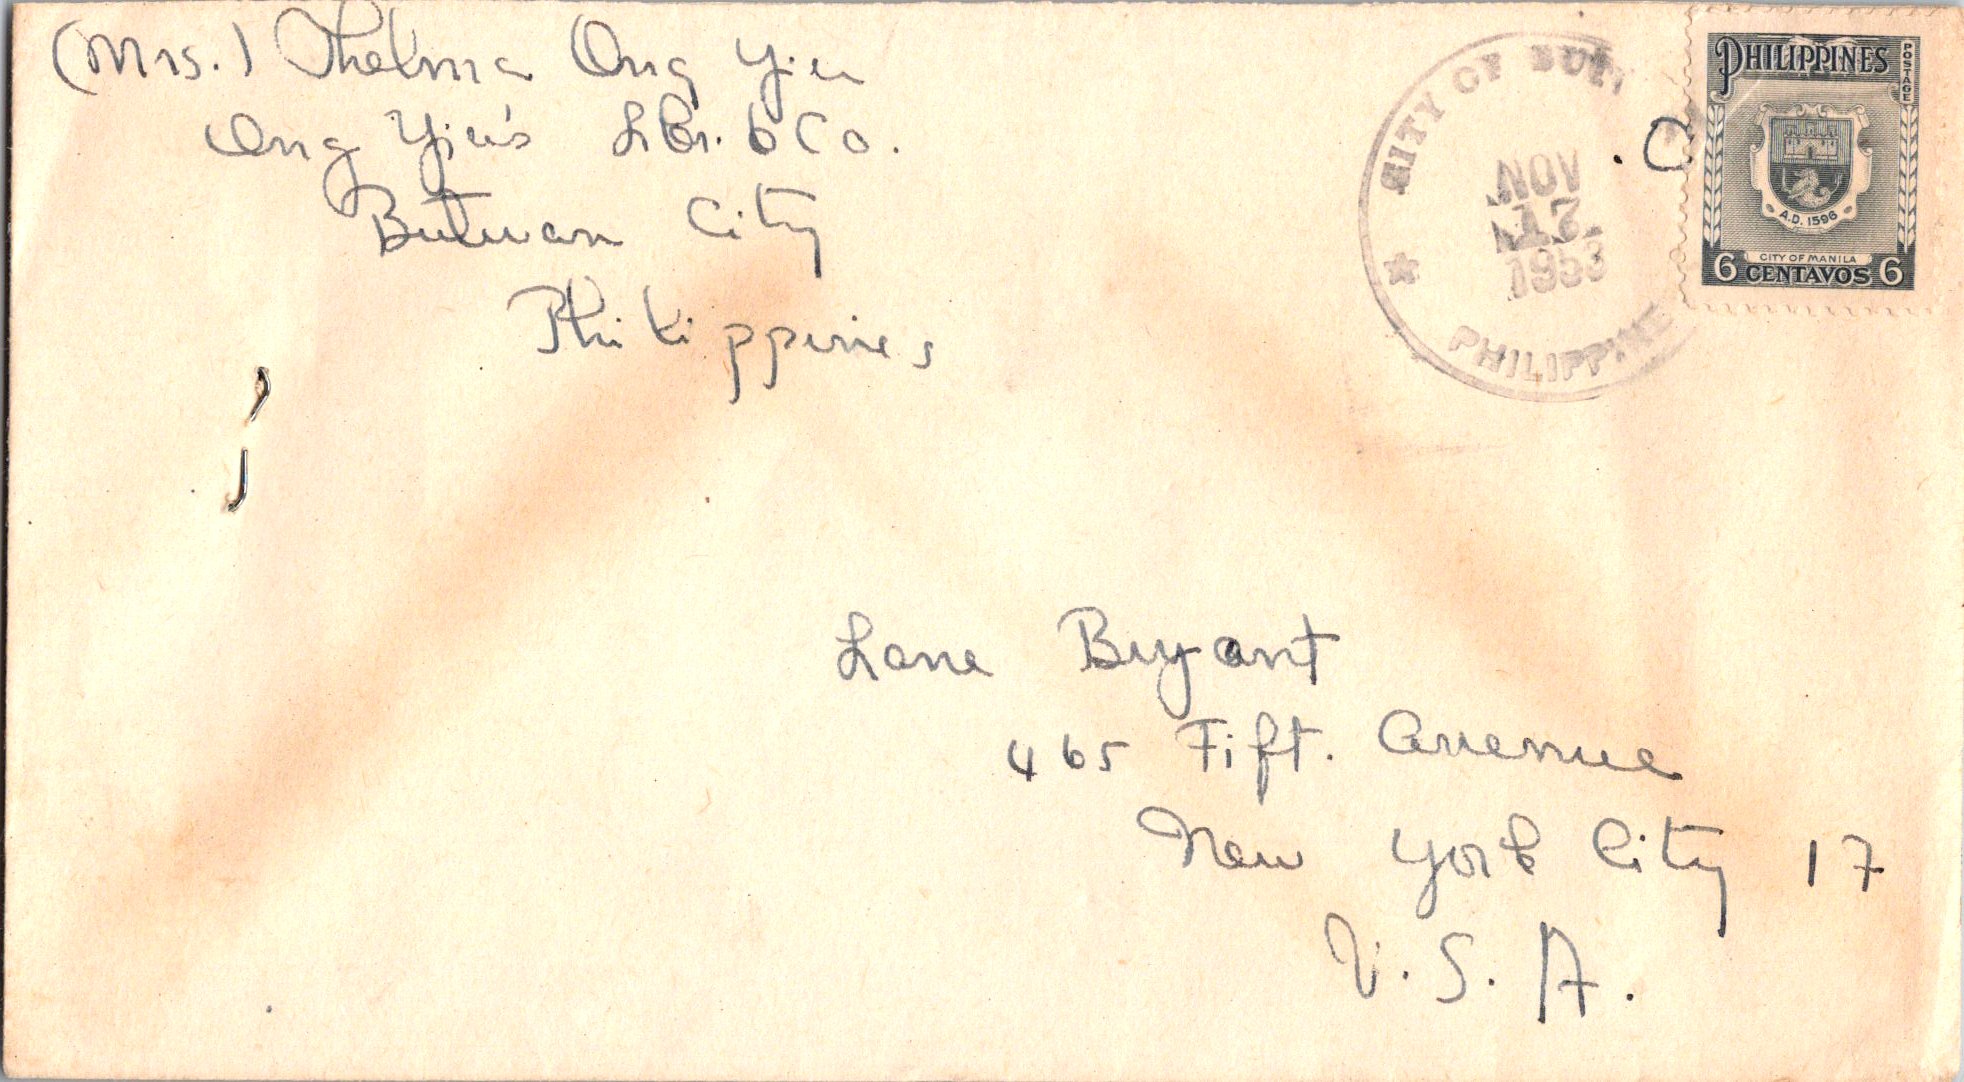 (Mrs.) Thelma Ong Yiu
Ong Yiu's Lbr. & Co.
Butuan City
Philippines
CITY OF BUT
NOV
12
1953
PHILIPPINE
PHILIPPINES
POSTAGE
A.D. 1596
CITY OF MANILA
6 CENTAVOS 6
Lane Bryant
465 Fift. Avenue
New York City 17
U.S.A.